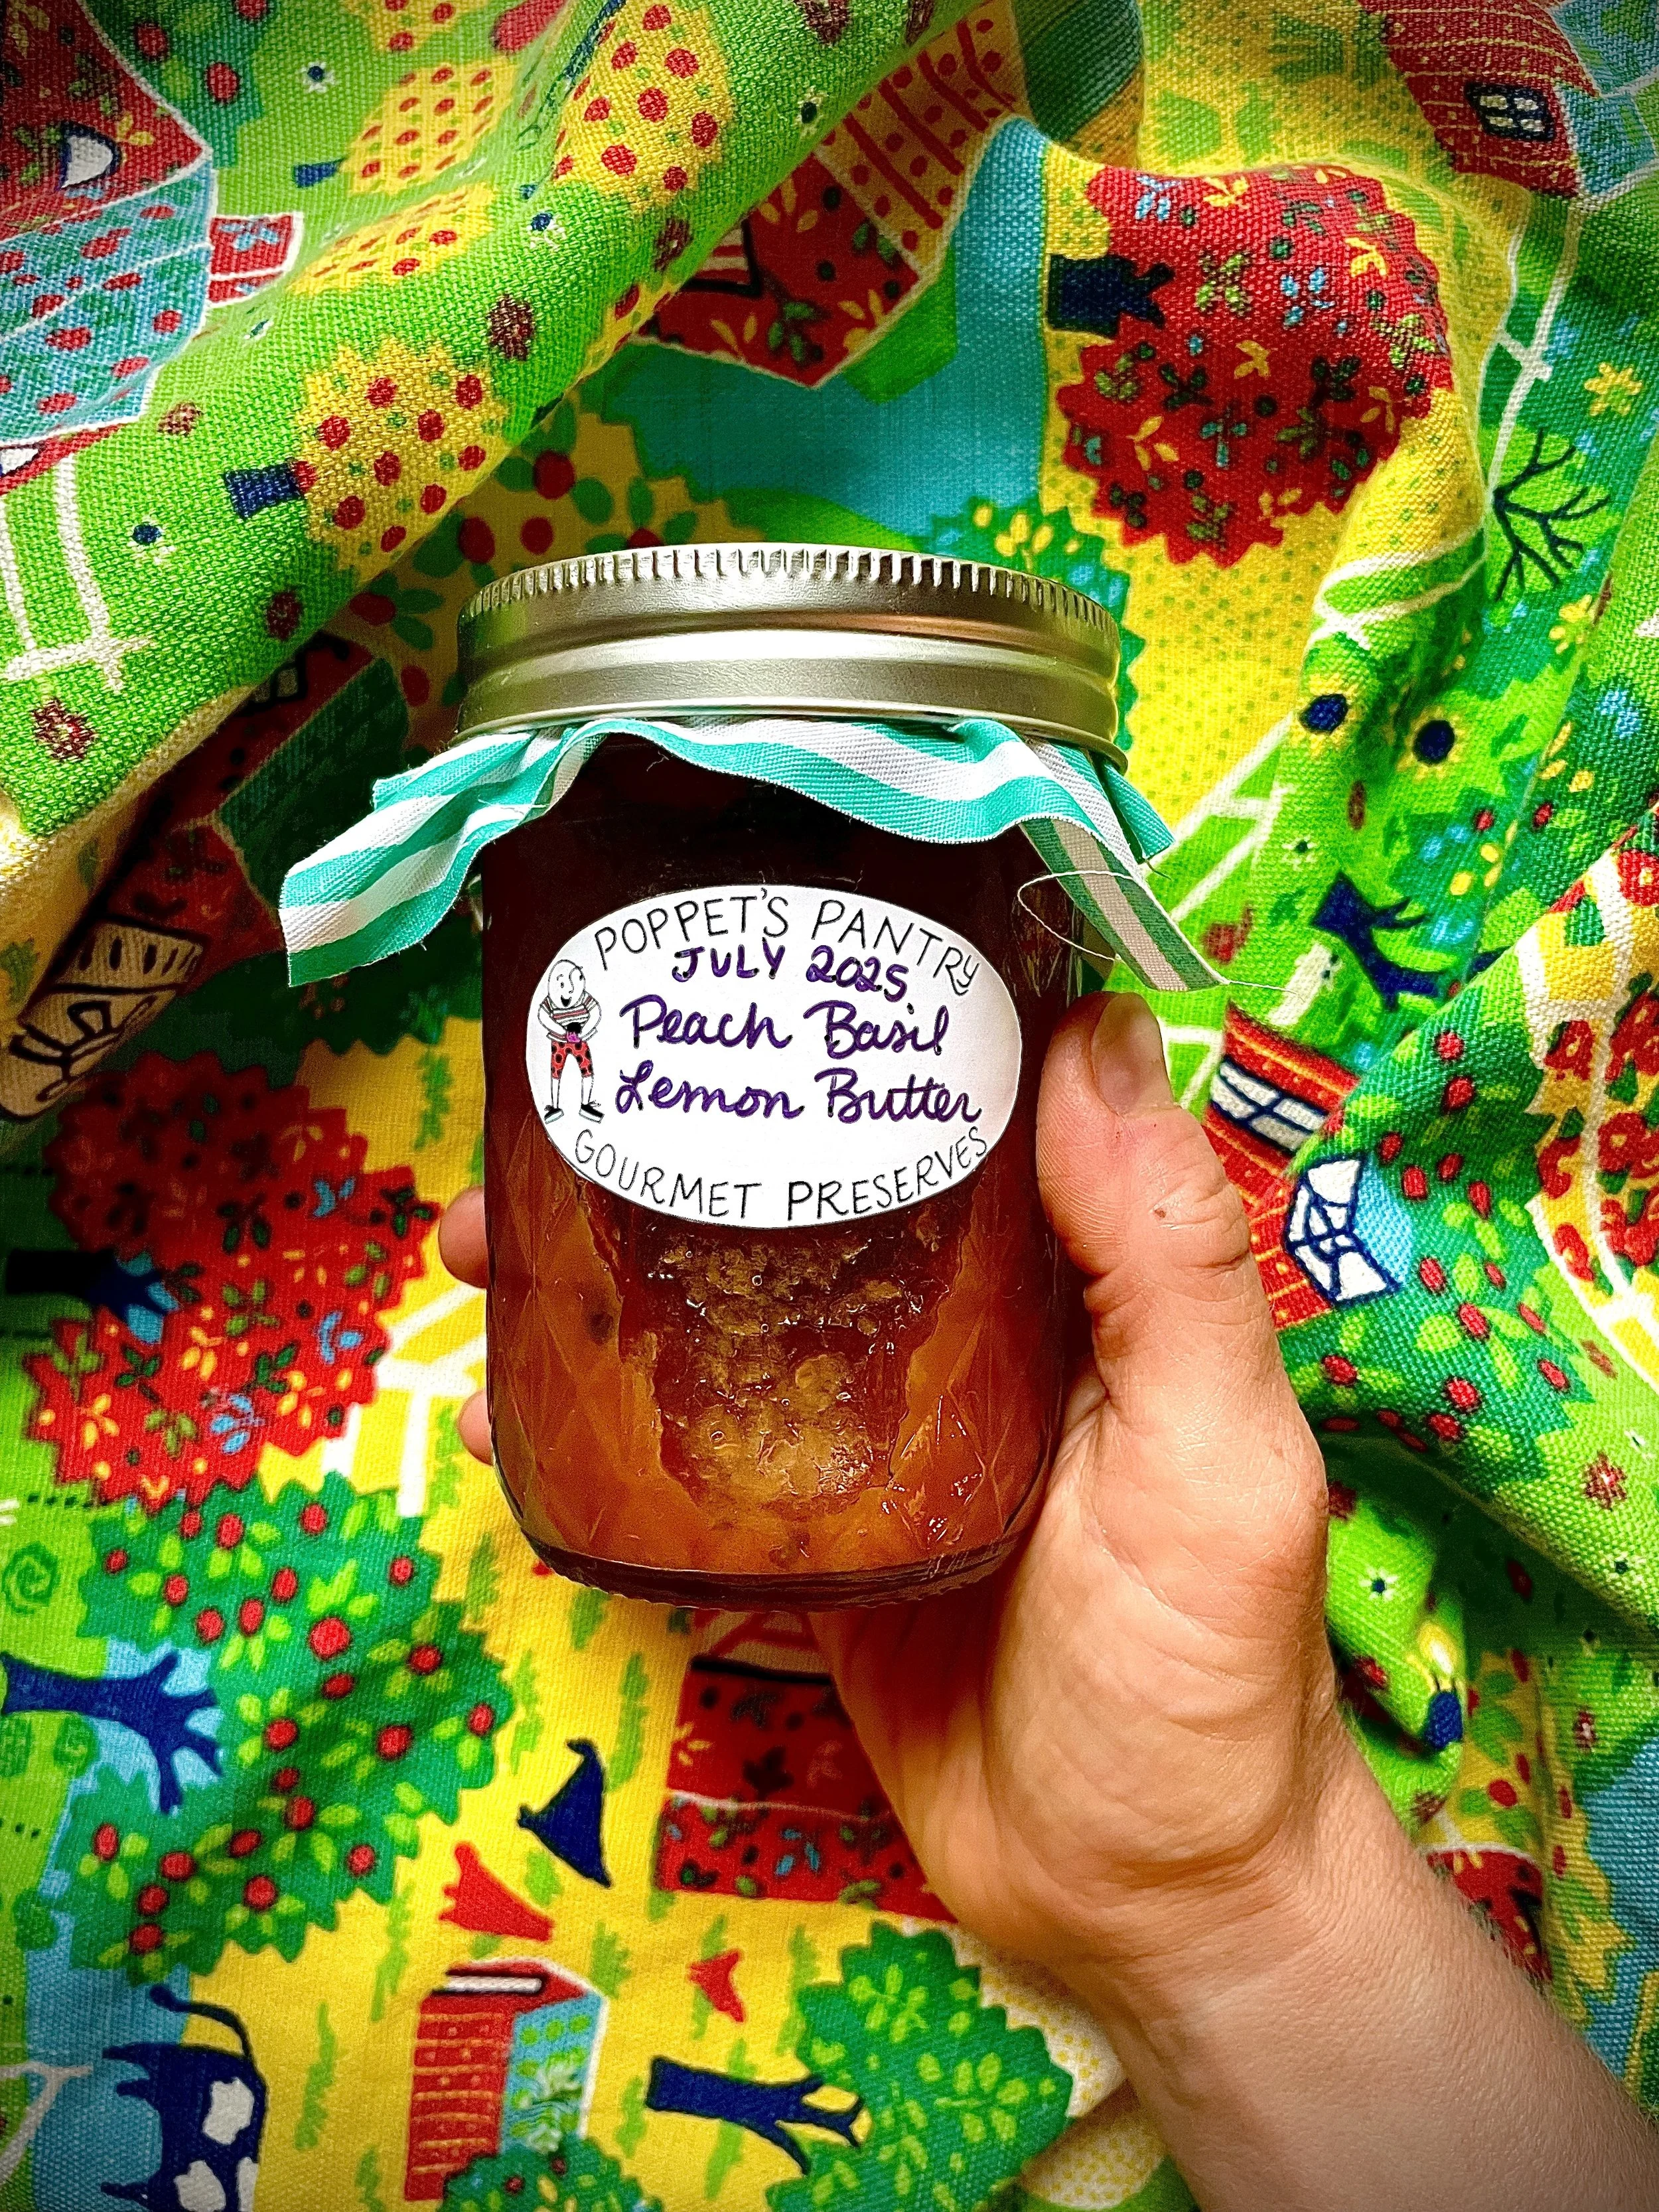 POPPET'S PANTRY
JULY 2025
Peach Basil
Lemon Butter
GOURMET PRESERVES